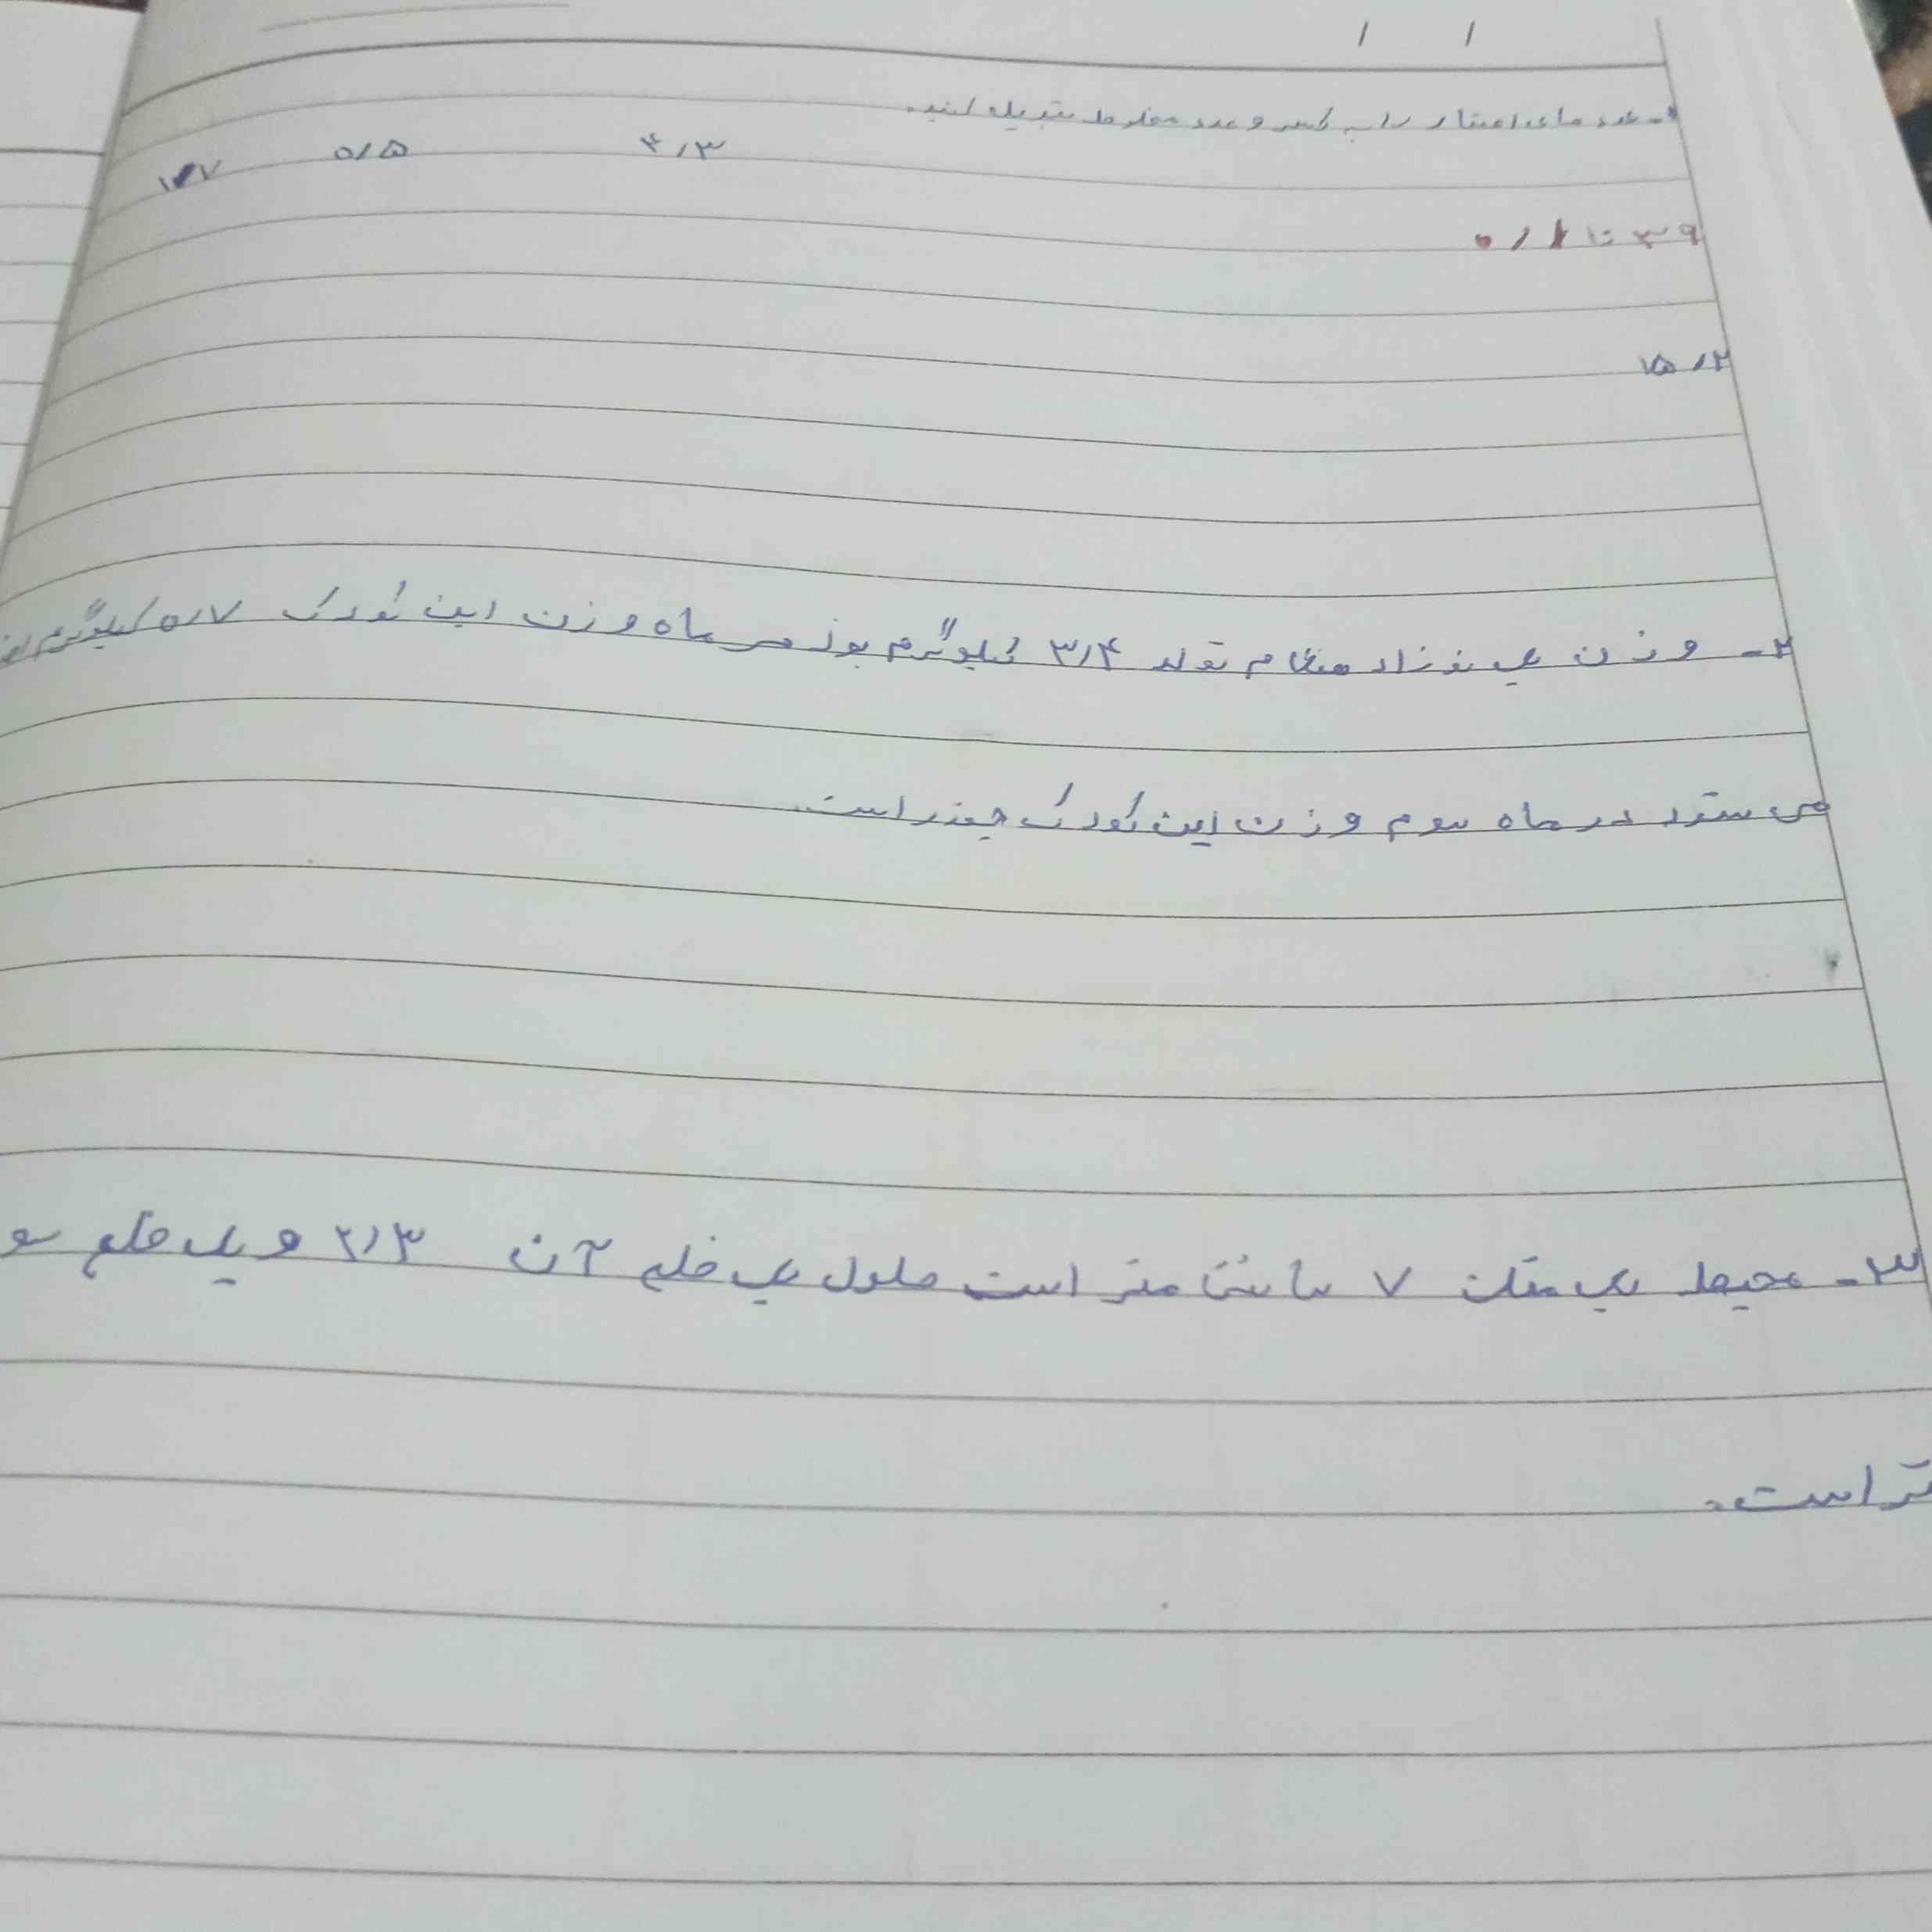 / /
۱- عدد های اعشار را به کسر و عدد مخلوط تبدیل کنید.
۴/۳ ۰/۵ ۱/۷
۳۹ تا ۰/۱
۷۵/۲
۲- وزن یک نوزاد هنگام تولد ۳/۴ کیلوگرم بود هر ماه وزن این کودک ۰/۷ کیلوگرم
می شود در ماه سوم وزن این کودک چقدر است
۳- محیط یک مثلث ۷ سانتی متر است طول یک ضلع آن ۲/۳ و یک ضلع
تر است.